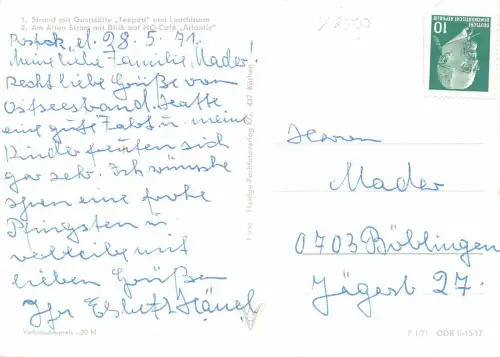 1. Strand mit Gaststätte „Teepott" und Leuchtturm
2. Am Alten Strom mit Blick auf HO-Café „Atlantic"
Rostock, d. 28.5.71.
Meine liebe Familie Mader!
Recht liebe Grüße vom
Ostseestrand. Hatte
eine gute Fahrt u. meine
Kinder freuten sich
gar sehr. Ich wünsche
Ihnen eine frohe
Pfingsten u.
verbleibe mit
lieben Grüßen
Ihr Hänel
Verbraucherpreis -,20 M
437 Köthen
10
DEUTSCHE DEMOKRATISCHE REPUBLIK
Herrn
Mader
0703 Böblingen
Jägerst 27.
P 1/71 DDR II-15-17